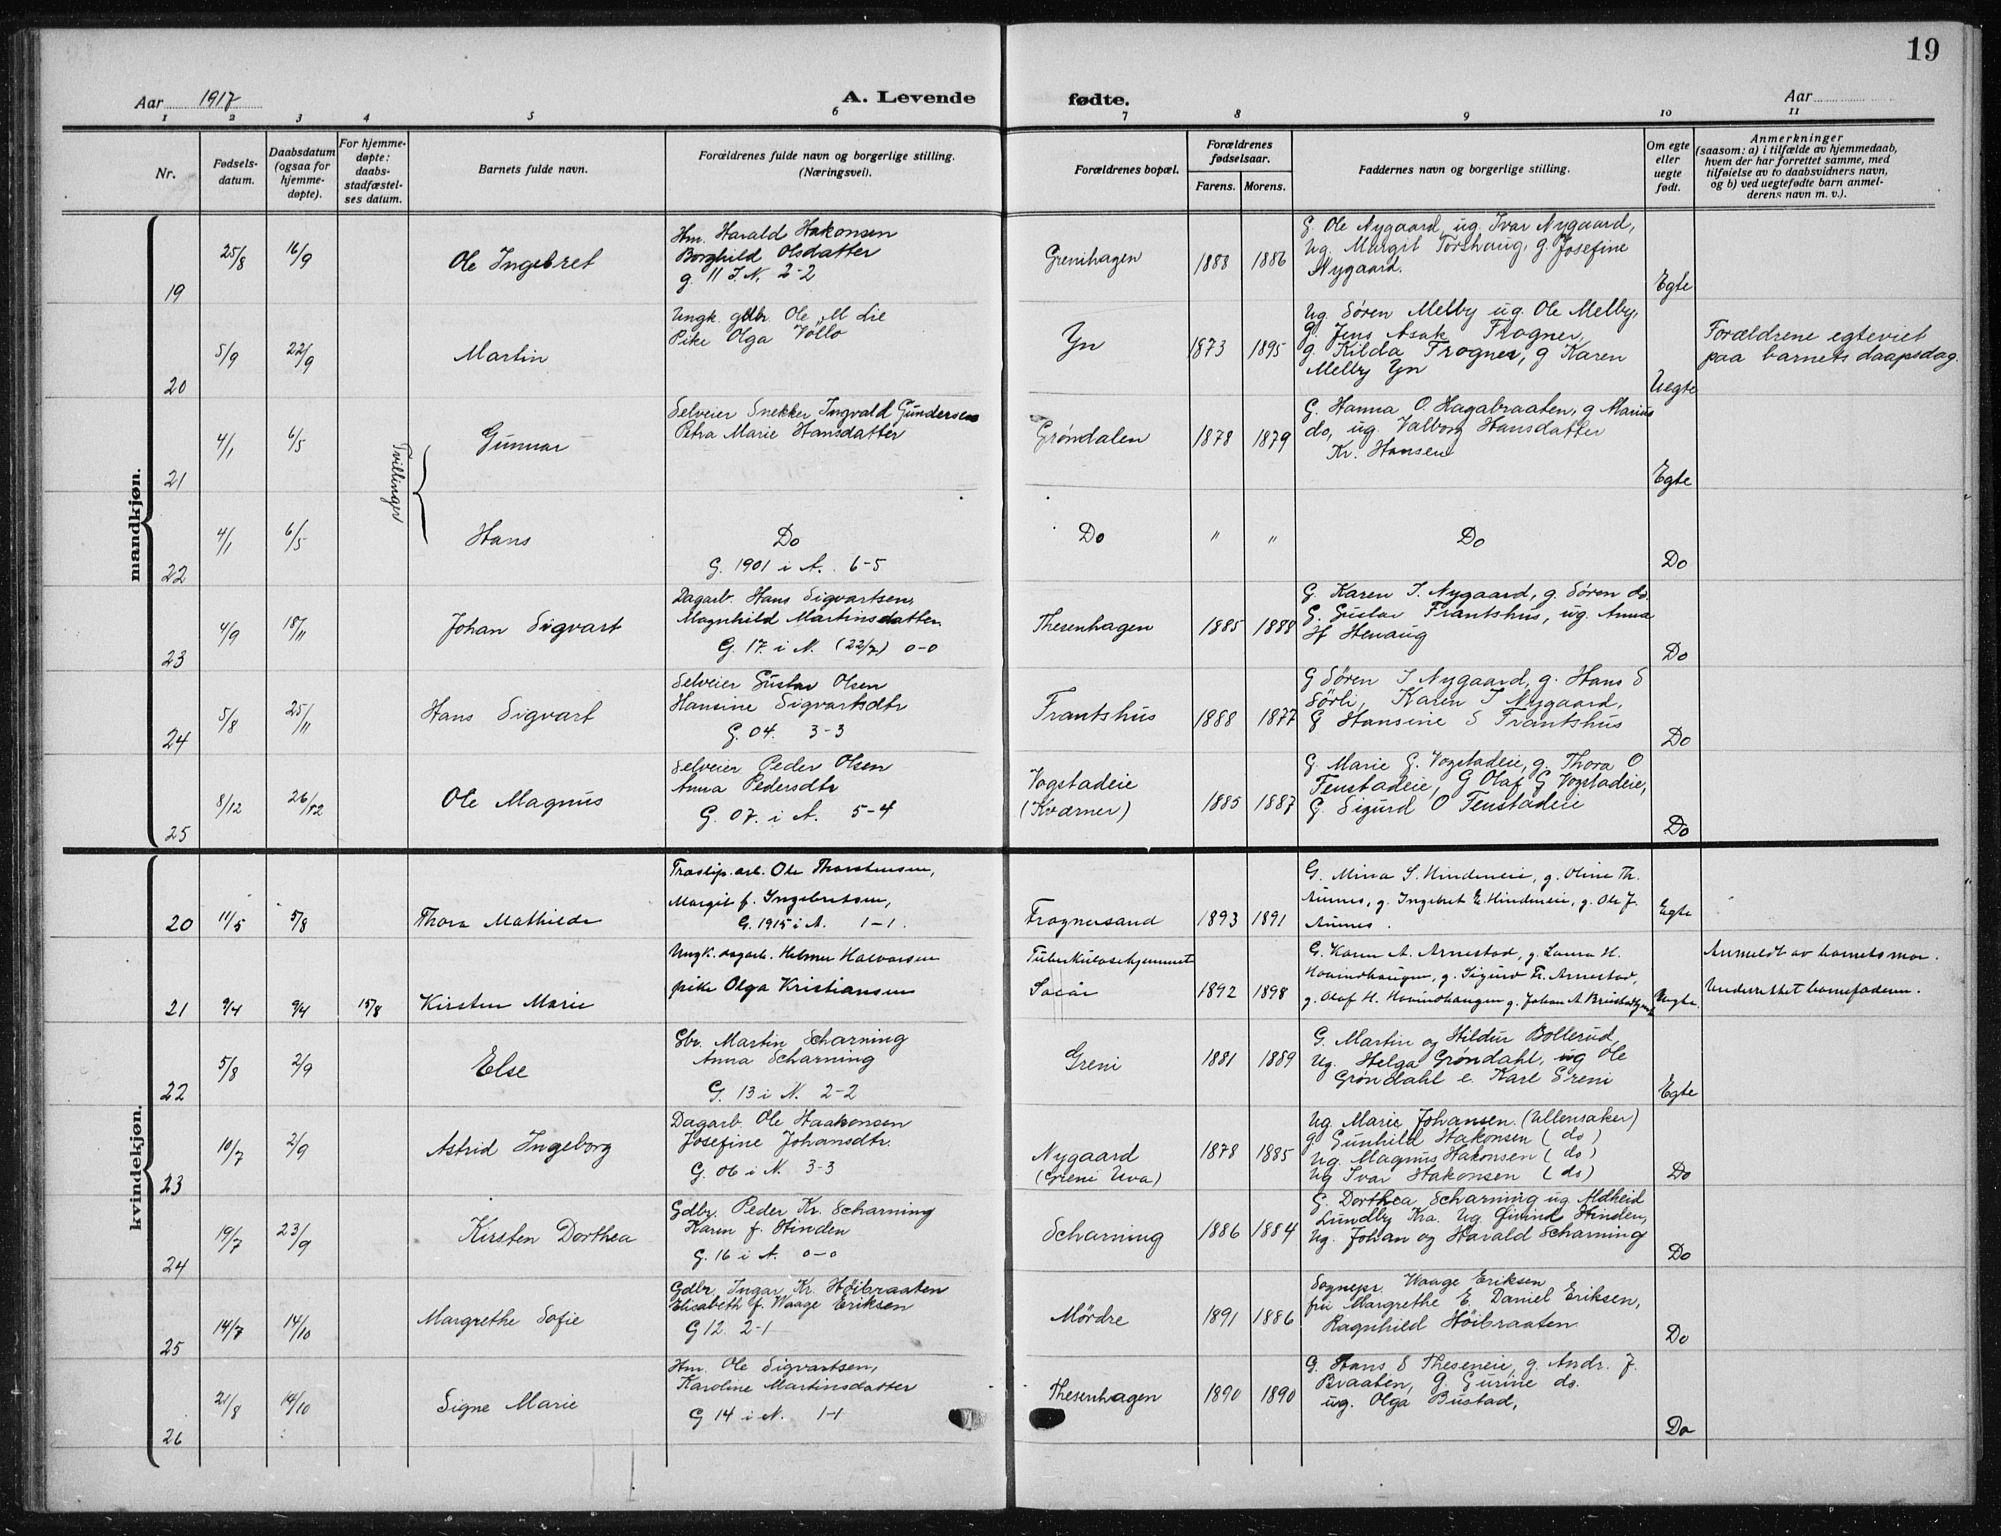 19
Aar 1917 A. Levende fødte. Aar
1 2 3 4 5 6 7 8 9 10 11
Nr. Fødsels-datum. Daabsdatum (ogsaa for hjemme-døpte). For hjemme-døpte: daabs-stadfæstel-ses datum. Barnets fulde navn. Forældrenes fulde navn og borgerlige stilling. (Næringsvei). Forældrenes bopæl. Forældrenes fødselsaar. Farens. Morens. Faddernes navn og borgerlige stilling. Om egte eller uegte født. Anmerkninger (saasom: a) i tilfælde av hjemmedaab, hvem der har forrettet samme, med tilføielse av to daabsvidners navn, og b) ved uegtefødte barn anmel-derens navn m. v.).
mandkjøn.
19 25/8 16/9 Ole Ingebret
Hm. Harald Hakonsen
Borghild Olsdatter
g. 11 I. N. 2-2
Grenihagen 1888 1886
G. Ole Nygaard, ug. Ivar Nygaard,
Ug. Margit Torshaug, g. Josefine
Nygaard.
Egte
20 5/9 22/9 Martin
Ungk. gdbr Ole M Lie
Pike Olga Vollo
Yn 1873 1895
Ug. Søren Melby ug. Ole Melby,
g. Jens Asak Frogner,
g. Kilda Frogner, g Karen
Melby Yn
Uegte
Forældrene egteviet
paa barnets daapsdag.
21 4/1 6/5 Tvillinger Gunnar
Selveier Snekker Ingvald Gundersen
Petra Marie Hansdatter
Grøndalen 1878 1879
G. Hanna O. Hagabraaten, g Marius
do, ug. Valborg Hansdatter
Kr. Hansen
Egte
22 4/1 6/5 Hans
Do
G. 1901 i A. 6-5
Do " " Do Do
23 4/9 18/11 Johan Sigvart
Dagarb. Hans Sigvartsen,
Magnhild Martinsdatter
G. 17. i N. (22/7) 0-0
Thesenhagen 1885 1888
G. Karen I. Nygaard, g. Søren do.
G. Gustav Frantshus, ug. Anna
H Henaug
Do
24 5/8 25/11 Hans Sigvart
Selveier Gustav Olsen
Hansine Sigvartsdtr
G. 04. 3-3
Frantshus 1888 1877
G Søren I Nygaard, g. Hans S
Sörli, Karen I Nygaard,
G Hansine S Frantshus
Do
25 8/12 26/12 Ole Magnus
Selveier Peder Olsen
Anna Pedersdtr
G. 07. i A. 5-4
Vogstadeie
(Kværner) 1885 1887
G. Marie G. Vogstadeie, g. Thora O
Tenstadeie, G Olaf G Vogstadeie,
G. Sigurd O Tenstadeie
Do
kvindekjøn.
20 11/5 5/8 Thora Mathilde
Træslip.arb. Ole Thorstensen,
Margit f. Ingebretsen,
G. 1915 i A. 1-1.
Frognersand 1893 1891
G. Mina S. Hindeneie, g. Oline Th.
Aunes, g. Ingebret E. Hindeneie, g. Ole J.
Aunes.
Egte
21 9/4 9/4 15/8 Kirsten Marie
Ungk. dagarb. Helmer Halvorsen
pike Olga Kristiansen
Tuberkulosehjemmet
1892 1898
G. Karen A. Arnestad, g. Laura H.
Hovindhaugen, g. Sigurd Fr. Arnestad,
g. Olaf H. Hovindhaugen g. Johan A
Uegte.
Anmeldt av barnets mor.
Underrettet barnefaderen.
22 5/8 2/9 Else
Gbr. Martin Scharning
Anna Scharning
G. 13 i N. 2-2
Greni 1881 1889
G. Martin og Hildur Bollerud,
Ug. Helga Grøndahl, ug Ole
Grøndahl e. Karl Greni
Egte
23 10/7 2/9 Astrid Ingeborg
Dagarb. Ole Haakonsen
Josefine Johansdtr.
G. 06 i N. 3-3
Nygaard
(Greni Uva) 1878 1885
Ug. Marie Johansen. (Ullensaker)
g. Gunhild Hakonsen (do)
Ug. Magnus Hakonsen (do)
Ug Ivar Hakonsen (do)
Do
24 19/7 23/9 Kirsten Dorthea
Gdbr. Peder Kr. Scharning
Karen f. Hinden
G. 16 i A. 0-0
Scharning 1886 1884
G. Dorthea Scharning ug Aldheid
Lundby Kra. Ug. Øivind Hinden,
Ug. Johan og Harald Scharning
Do
25 14/7 14/10 Margrethe Sofie
Gdbr. Ingar Kr. Høibraaten
Elisabeth f. Waage Eriksen
G 12. 2-1
Mördre 1891 1886
Sognepr. Waage Eriksen
fru Margrethe E. Daniel Eriksen,
Ragnhild Höibraaten
Do
26 21/8 14/10 Signe Marie
Hm. Ole Sigvartsen,
Karoline Martinsdatter
G 14 i N. 1-1
Thesenhagen 1890 1890
G. Hans S Theseneie, g. Andr. J.
Braaten, g. Gurine do.
ug. Olga Bustad,
Do